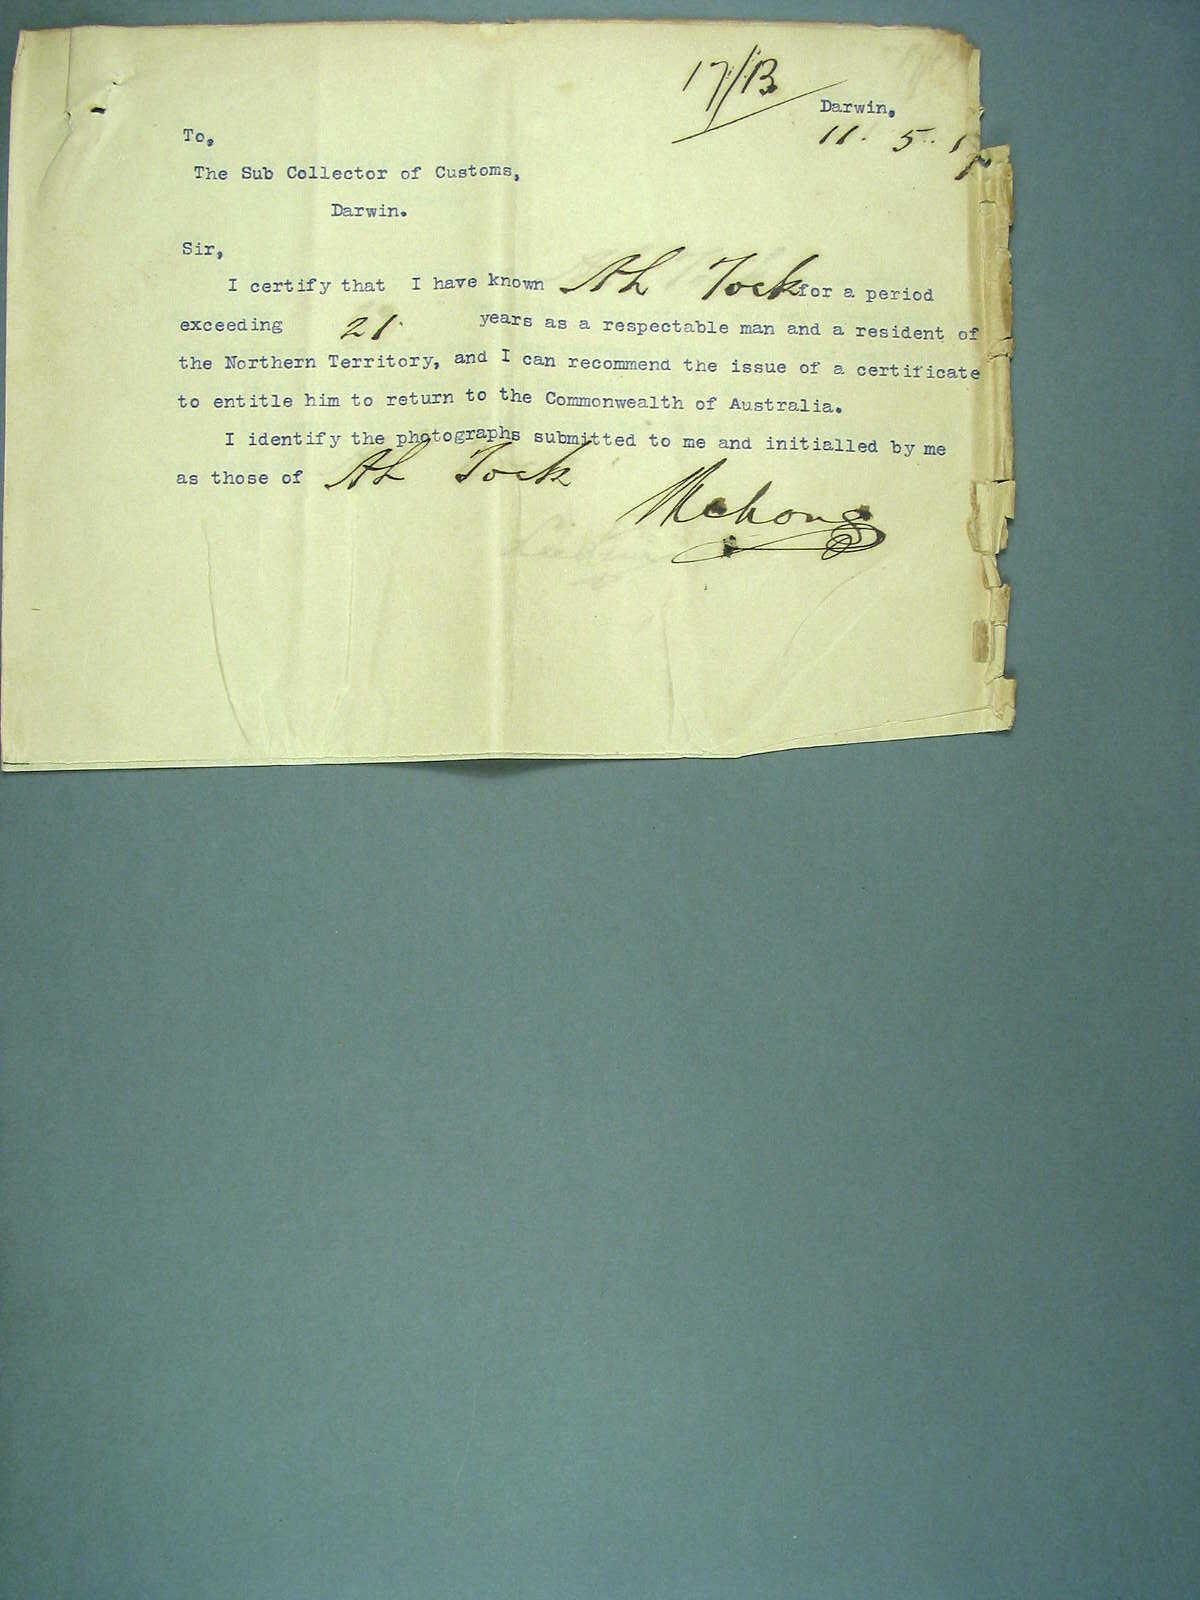 17/13
Darwin,
11. 5. 17
To,
The Sub Collector of Customs,
Darwin.
Sir,
I certify that I have known Ah Tock for a period
exceeding 21 years as a respectable man and a resident of
the Northern Territory, and I can recommend the issue of a certificate
to entitle him to return to the Commonwealth of Australia.
I identify the photographs submitted to me and initialled by me
as those of Ah Tock